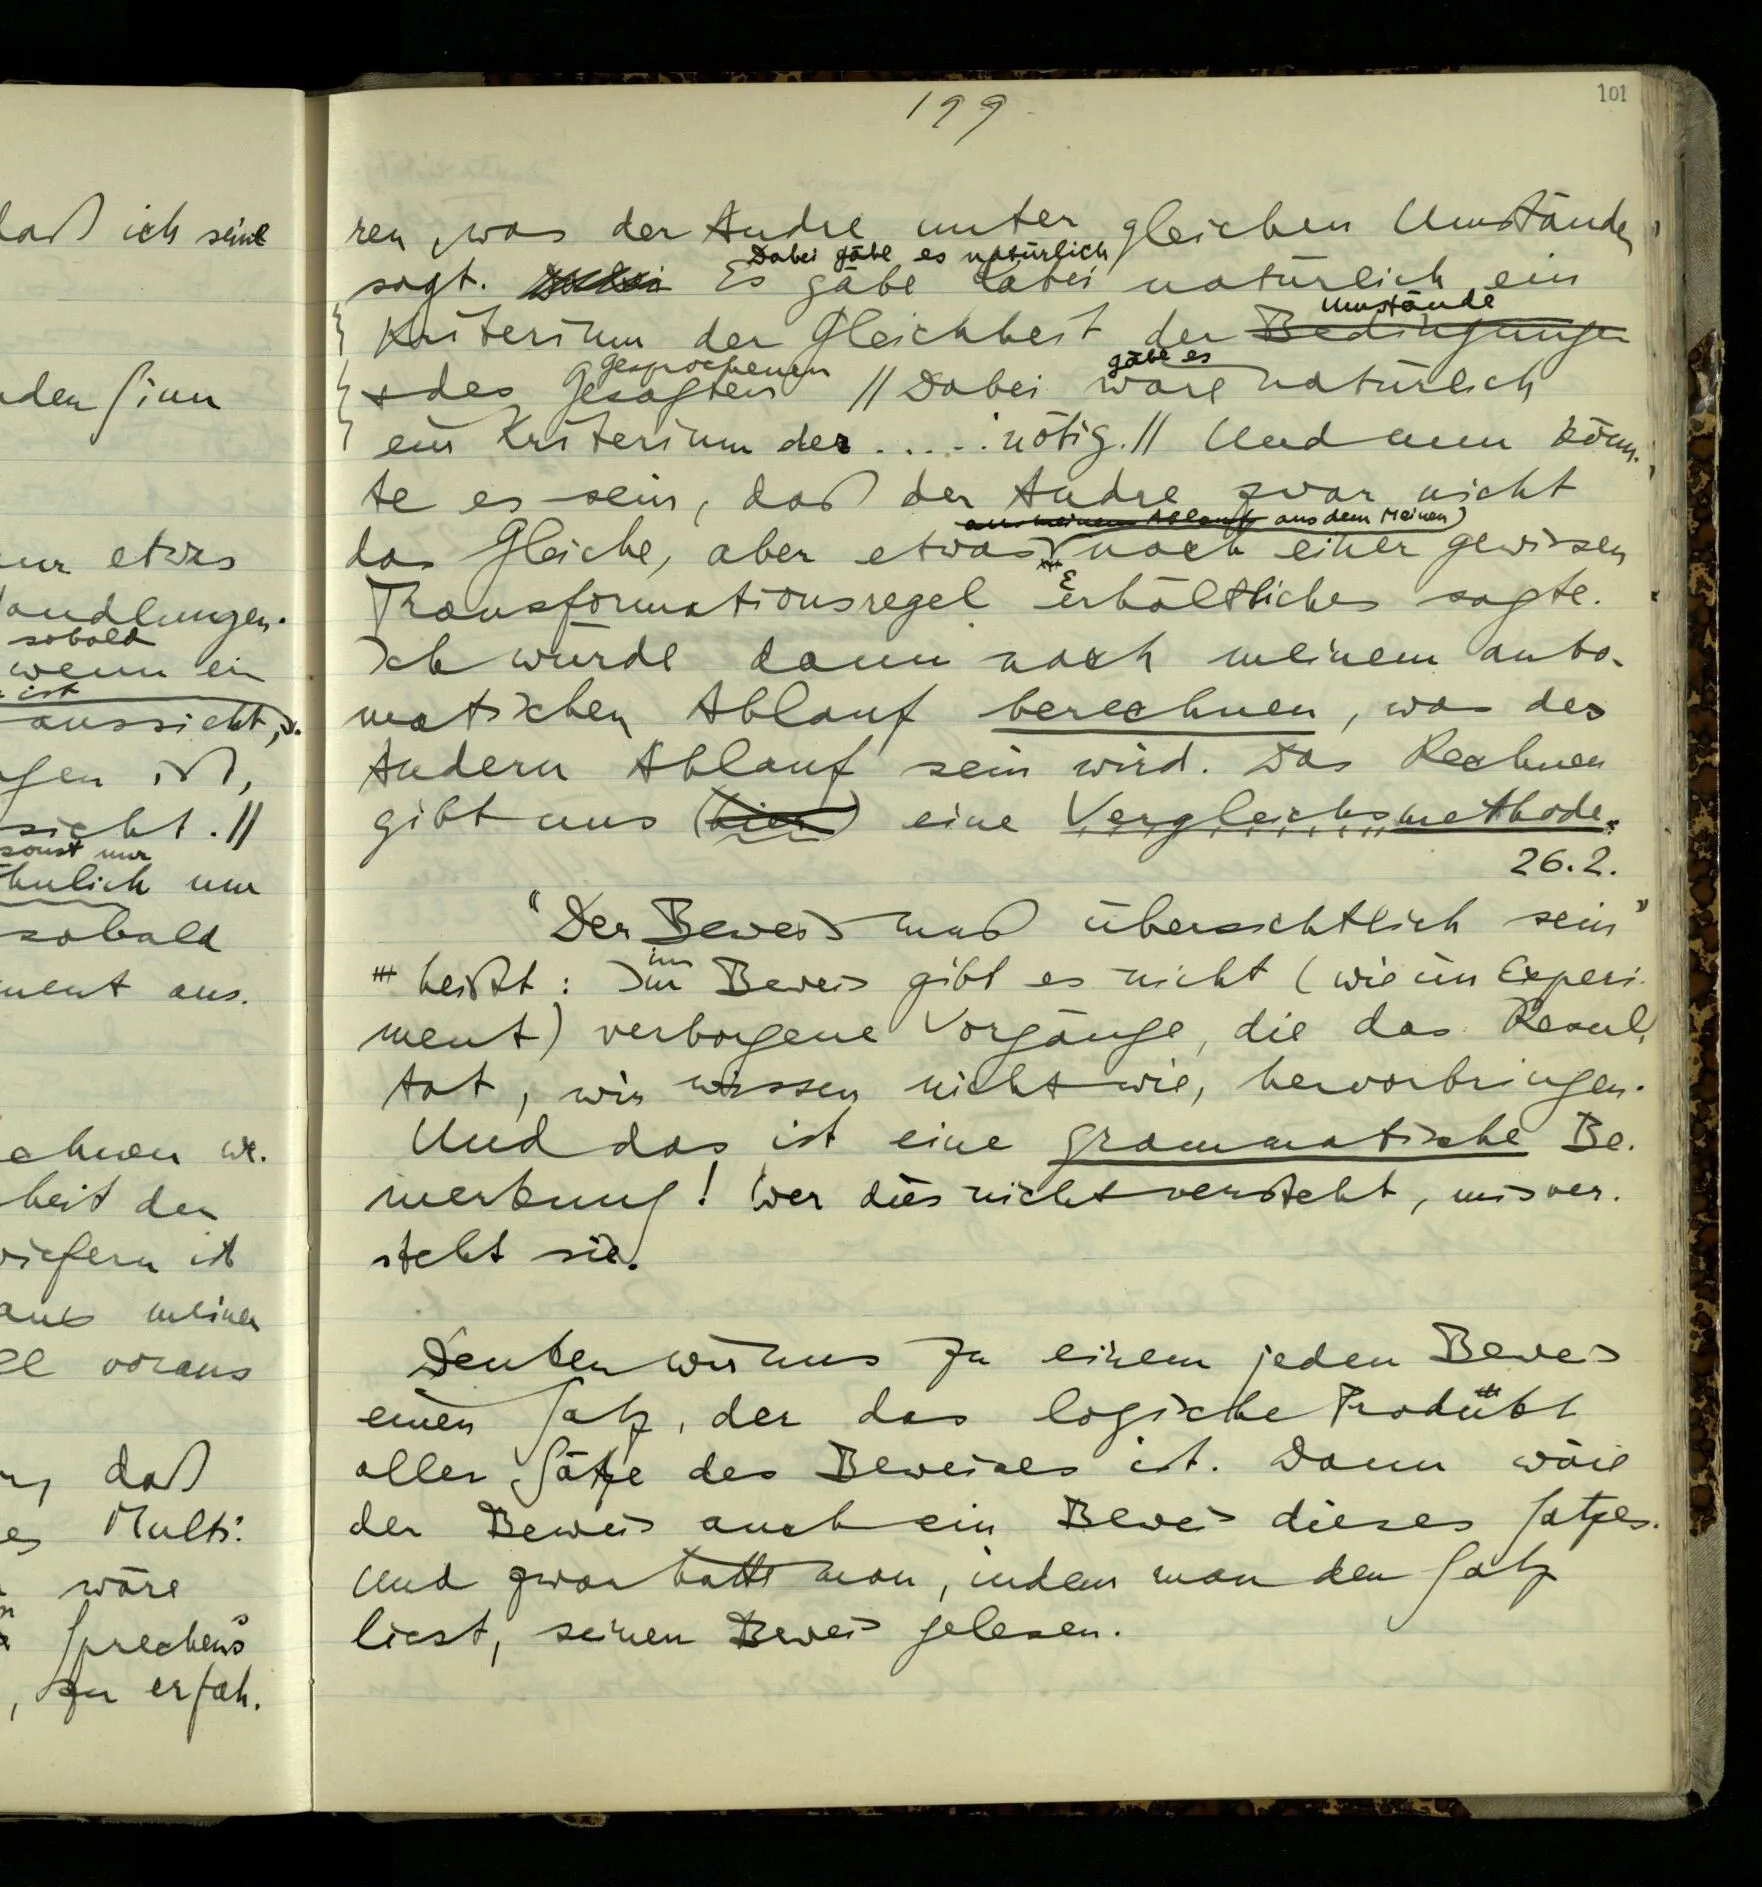 daß ich seine
nden Sinn
nur etwas
Handlungen.
sobald
wenn ein
ist
aussieht, s.
gen ist,
sieht. //
sonst nur
hnlich nur
sobald
ment aus.
echnen we-
heit der
wiefern ist
aus meinem
voraus
daß
es Multi-
wäre
Sprechens
, zu erfah-
199
101
ren, was der Andre unter gleichen Umständen
Dabei gäbe es natürlich
sagt. Es gäbe dabei natürlich ein
Umstände
Kriterium der Gleichheit der Bedingungen
Gesprochenen gäbe es
+ des Gesagten // Dabei wäre natürlich
ein Kriterium der ..... nötig. // Und nun könn-
te es sein, daß der Andre zwar nicht
aus meinem Ablauf aus dem Meinen
das Gleiche, aber etwas nach einer gewissen
Transformationsregel Erhältliches sagte.
Ich würde dann nach meinem auto-
matischen Ablauf berechnen, was des
Andern Ablauf sein wird. Das Rechnen
gibt uns (hier) eine Vergleichsmethode.
26.2.
"Der Beweis muß übersichtlich sein"
im
heißt: Im Beweis gibt es nicht (wie im Experi-
ment) verborgene Vorgänge, die das Resul-
tat, wir wissen nicht wie, hervorbringen.
Und das ist eine grammatische Be-
merkung! Wer dies nicht versteht, misver-
steht sie.
Denken wir uns zu einem jeden Beweis
einen Satz, der das logische Produkt
aller Sätze des Beweises ist. Dann wäre
der Beweis auch ein Beweis dieses Satzes.
Und zwar hätte man, indem man den Satz
liest, seinen Beweis gelesen.